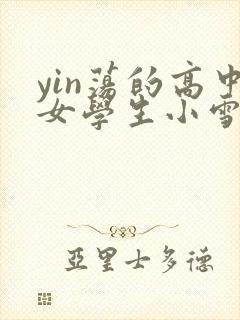 yin蕩的高中
女學生小雪
亞里士多德